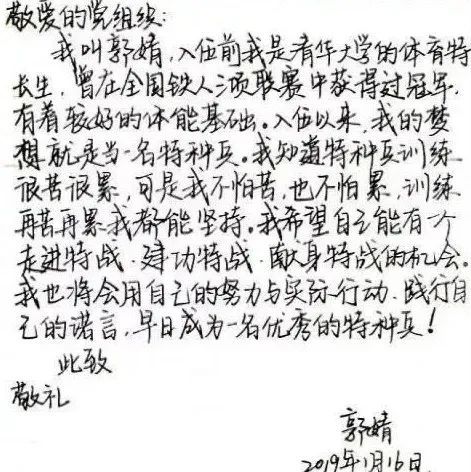 敬爱的党组织:
我叫郭婧,入伍前我是清华大学的体育特
长生,曾在全国铁人三项联赛中获得过冠军,
有着较好的体能基础。入伍以来,我的梦
想就是当一名特种兵。我知道特种兵训练
很苦很累,可是我不怕苦,也不怕累,训练
再苦再累我都能坚持。我希望自己能有一个
走进特战、建功特战、献身特战的机会。
我也将会用自己的努力与实际行动,践行自
己的诺言,早日成为一名优秀的特种兵!
此致
敬礼
郭婧
2019年1月16日